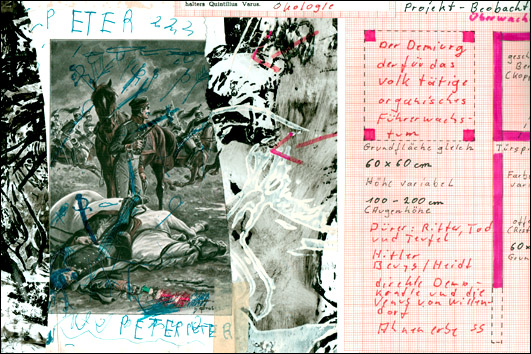 halters Quintilius Varus.
Ökologie
Projekt-Beobacht
Oberwach
PETER
Der Demiurg
der für das
Volk tätige
organisches
Führerwachs-
tum
Grundfläche gleich
60 x 60 cm
Höhe variabel
100 - 200 cm
(Augenhöhe
Dürer: Ritter, Tod
und Teufel
Hitler
Beuys/Heidt
direkte Demo-
kratie und die
Venus von Willen
dorf
Ahnenerbe SS
gesch
Be
(Kopp
Türsp
Farb
var
(Rest
60 x
Grun
PETER